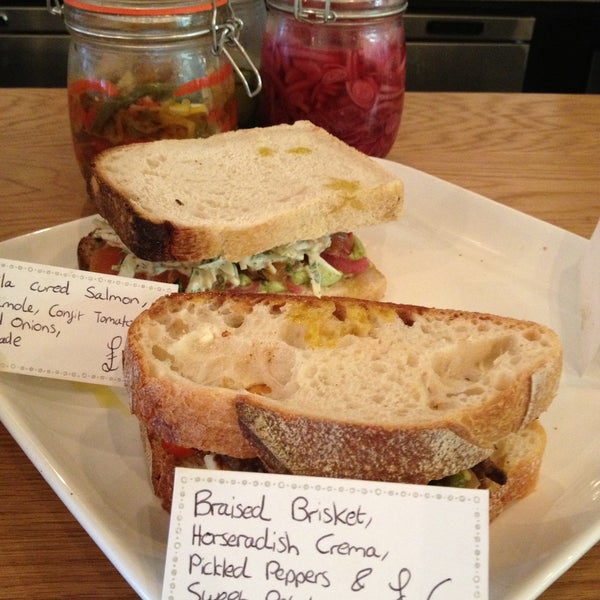 la cured Salmon,
mole, Confit Tomato
d Onions,
ade £
Braised Brisket,
Horseradish Crema,
Pickled Peppers & £6
Sweet